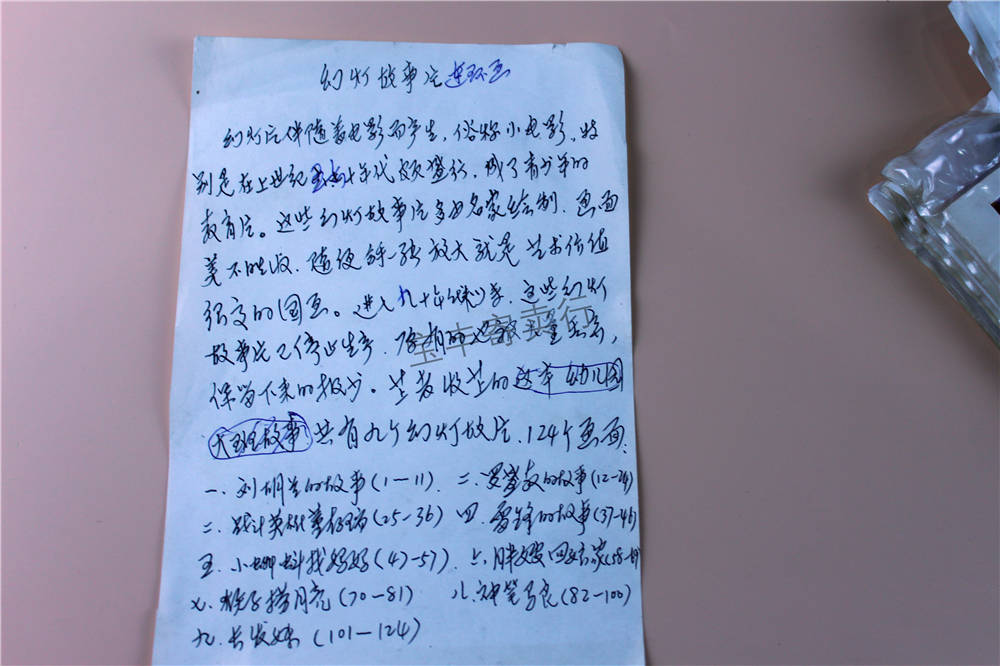 幻灯故事片连环画
幻灯片伴随着电影而产生，俗称小电影，特
别是在上世纪五六十年代颇盛行，成了青少年的
教育片。这些幻灯故事片多由名家绘制，画面
美不胜收，随便一张放大就是艺术价值
很高的国画。进入九十年代以来，这些幻灯
故事片已停止生产，原有的也都大量丢弃，
保留下来的极少。笔者收藏的这本幼儿园
大班故事共有九个幻灯故片，124个画面：
一、刘胡兰的故事（1—11）二、罗盛教的故事（12—24）
三、战斗英雄董存瑞（25—36）四、雷锋的故事（37—46）
五、小蝌蚪找妈妈（47—57）六、胖嫂回娘家（58—69）
七、猴子捞月亮（70—81）八、神笔马良（82—100）
九、长发妹（101—124）
宝丰客卖行